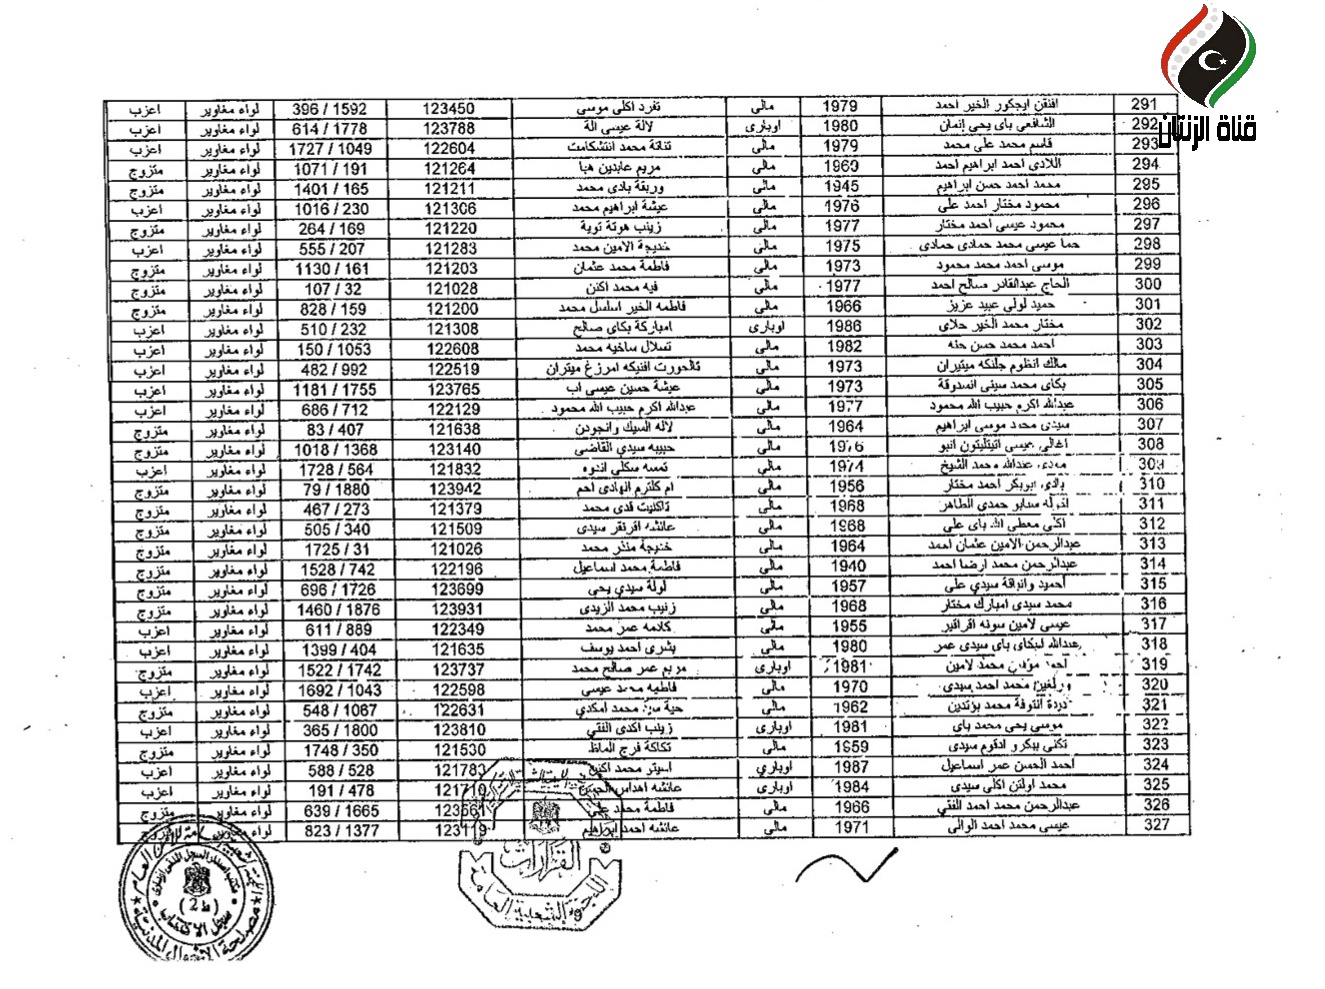 قناة الزنتان
291 افنقن ايجكور الخير احمد 1979 مالى تفرد اكلى موسى 123450 396 / 1592 لواء مغاوير اعزب
292 الشافعى باى يحى إنمان 1980 اوبارى لالة عيسى الة 123788 614 / 1778 لواء مغاوير اعزب
293 قاسم محمد على محمد 1979 مالى تنانة محمد انتشكامت 122604 1727 / 1049 لواء مغاوير اعزب
294 اللادى احمد ابراهيم احمد 1969 مالى مريم عابدين هبا 121264 1071 / 191 لواء مغاوير متزوج
295 محمد احمد حسن ابراهيم 1945 مالى وريقة بادى محمد 121211 1401 / 165 لواء مغاوير متزوج
296 محمود مختار احمد على 1976 مالى عيشة ابراهيم محمد 121306 1016 / 230 لواء مغاوير اعزب
297 محمود عيسى احمد مختار 1977 مالى زينب هوتة توية 121220 264 / 169 لواء مغاوير متزوج
298 حما عيسى محمد حمادى حمادى 1975 مالى خديجة الامين محمد 121283 555 / 207 لواء مغاوير اعزب
299 موسى احمد محمد محمود 1973 مالى فاطمة محمد عثمان 121203 1130 / 161 لواء مغاوير متزوج
300 الحاج عبدالقادر صالح احمد 1977 مالى فيه محمد اكنن 121028 107 / 32 لواء مغاوير متزوج
301 حميد لولى عبيد عزيز 1966 مالى فاطمه الخير اسلسل محمد 121200 828 / 159 لواء مغاوير متزوج
302 مختار محمد الخير حلاى 1986 اوبارى امباركة بكاى صالح 121308 510 / 232 لواء مغاوير اعزب
303 احمد محمد حسن حنه 1982 مالى تسلال ساخيه محمد 122608 150 / 1053 لواء مغاوير اعزب
304 مالك انظوم جلنكه ميتيران 1973 مالى تالحورت افنيكه امرزغ ميتران 122519 482 / 992 لواء مغاوير اعزب
305 بكاى محمد سينى انسدوقة 1973 مالى عيشة حسين عيسى اب 123765 1181 / 1755 لواء مغاوير اعزب
306 عبدالله اكرم حبيب الله محمود 1977 مالى عبدالله اكرم حبيب الله محمود 122129 686 / 712 لواء مغاوير اعزب
307 سيدى محمد موسى ابراهيم 1964 مالى لاله السيك وانجودن 121638 83 / 407 لواء مغاوير متزوج
308 اغالى عيسى اتيتليتون انبو 1976 مالى حبيبه سيدي القاضى 123140 1018 / 1368 لواء مغاوير متزوج
309 عبدالله محمد الشيخ 1974 مالى تمسه سكلى اندوه 121832 1728 / 564 لواء مغاوير اعزب
310 بادى ابوبكر احمد مختار 1956 مالى ام كلثرم الهادى احم 123942 79 / 1880 لواء مغاوير متزوج
311 سابو حمدى الطاهر 1968 مالى تاكنيت قدى محمد 121379 467 / 273 لواء مغاوير متزوج
312 اكلى معطى الله باى على 1968 مالى عائشه اقرنقر سيدى 121509 505 / 340 لواء مغاوير متزوج
313 عبدالرحمن الامين عثمان احمد 1964 مالى خديجة منتر محمد 121026 1725 / 31 لواء مغاوير متزوج
314 عبدالرحمن محمد ارضا احمد 1940 مالى فاطمة محمد اسماعيل 122196 1528 / 742 لواء مغاوير متزوج
315 احميد وانواقة سيدي على 1957 مالى لولة سيدي يحى 123699 696 / 1726 لواء مغاوير متزوج
316 محمد سيدى امبارك مختار 1968 مالى زنيب محمد الزيدى 123931 1460 / 1876 لواء مغاوير متزوج
317 عيسى لامين سونه اقراقير 1955 مالى كلامه عمر محمد 122349 611 / 889 لواء مغاوير اعزب
318 عبدالله لبكاى باى سيدى عمر 1980 مالى بشرى احمد يوسف 121635 1399 / 404 لواء مغاوير اعزب
319 محمد لامين 1981 اوبارى مريم عمر صالح محمد 123737 1522 / 1742 لواء مغاوير متزوج
320 محمد احمد سيدى 1970 مالى فاطمه محمد عيسى 122598 1692 / 1043 لواء مغاوير اعزب
321 دردة انتوفة محمد بؤتدين 1962 مالى حية محمد امكدي 122631 548 / 1067 لواء مغاوير متزوج
322 موسى يحى محمد باى 1981 اوبارى زينب اكدى الفتي 123810 365 / 1800 لواء مغاوير اعزب
323 تكنى ببكرو ادقوم سيدى 1959 مالى تكاكة فرج الماظ 121530 1748 / 350 لواء مغاوير متزوج
324 احمد الحسن عمر اسماعيل 1987 اوباري اسيتر محمد اكنن 121783 588 / 528 لواء مغاوير اعزب
325 محمد اولتن اكلى سيدى 1984 اوبارى عائشه اهداس 121710 191 / 478 لواء مغاوير اعزب
326 عبدالرحمن محمد احمد الفتي 1966 مالى فاطمة محمد على 123561 639 / 1665 لواء مغاوير متزوج
327 عيسى محمد احمد الوالى 1971 مالى عائشه احمد ابراهيم 123119 823 / 1377 لواء مغاوير متزوج
القرارات
اللجنة الشعبية العامة
سجل الاكتتاب
مصلحة الاحوال المدنية